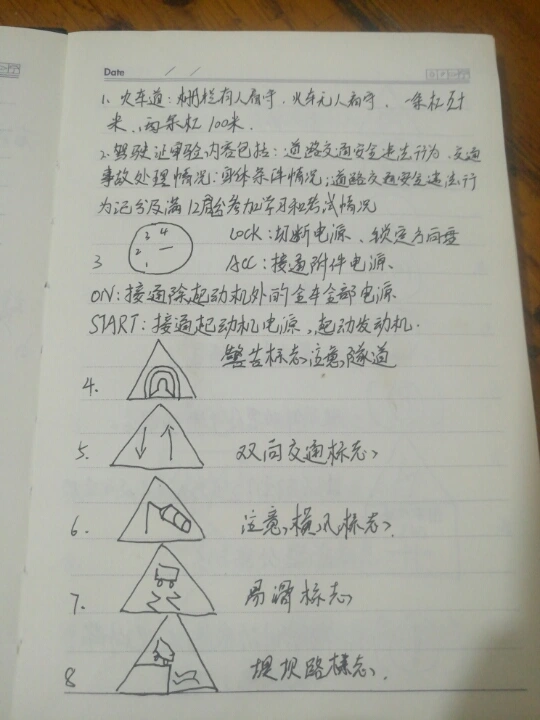 Date / /
1、火车道：栅栏有人看守、火车无人看守、一条杠50
米、两条杠100米.
2.驾驶证审验内容包括：道路交通安全违法行为、交通
事故处理情况；身体条件情况；道路交通安全违法行
为记分及满12周台参加学习和考试情况
3 1 2 3 4 LOCK：切断电源、锁定方向盘
ACC：接通附件电源、
ON：接通除起动机外的全车全部电源
START：接通起动机电源、起动发动机.
4. 警告标志、注意隧道
5. 双向交通标志、
6. 注意横风标志、
7. 易滑标志、
8 堤坝路标志、